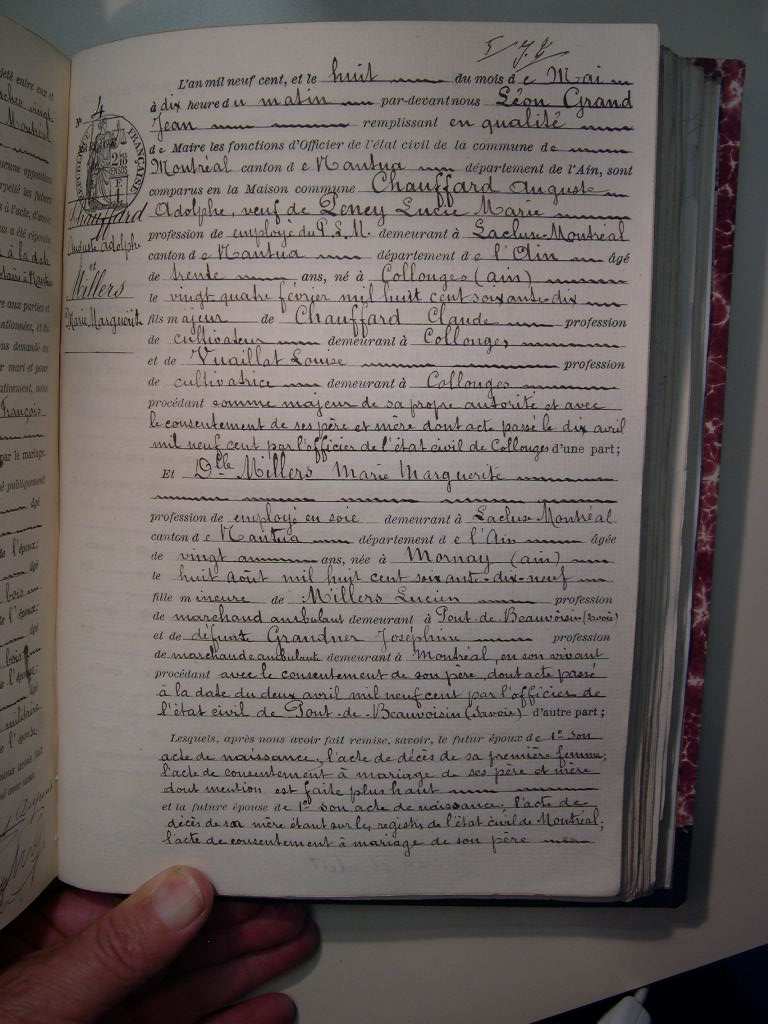 N° 4
Chauffard
Auguste Adolphe
et
Millers
Marie Marguerite
L'an mil neuf cent, et le huit du mois de Mai
à dix heure du matin par-devant nous Léon Grand
Jean remplissant en qualité
de Maire les fonctions d'Officier de l'état civil de la commune de
Montréal canton de Nantua département de l'Ain, sont
comparus en la Maison commune Chauffard Auguste
Adolphe, veuf de Peney Lucie Marie
profession de employé du P.L.M. demeurant à Lacluse-Montréal
canton de Nantua département de l'Ain âgé
de trente ans, né à Collonges (ain)
le vingt quatre février mil huit cent soixante dix
fils majeur de Chauffard Claude profession
de cultivateur demeurant à Collonges
et de Vuaillat Louise profession
de cultivatrice demeurant à Collonges
procédant comme majeur de sa propre autorité et avec
le consentement de ses père et mère dont acte passé le dix avril
mil neuf cent par l'officier de l'état civil de Collonges d'une part;
Et Dlle Millers Marie Marguerite
profession de employé en soie demeurant à Lacluse-Montréal
canton de Nantua département de l'Ain âgée
de vingt ans, née à Mornay (ain)
le huit août mil huit cent soixante-dix-neuf
fille mineure de Millers Lucien profession
de marchand ambulant demeurant à Pont-de-Beauvoisin (Savoie)
et de défunte Grandner Joséphine profession
de marchande ambulante demeurant à Montréal, en son vivant
procédant avec le consentement de son père, dont acte passé
à la date du deux avril mil neuf cent par l'officier de
l'état civil de Pont-de-Beauvoisin (Savoie) d'autre part;
Lesquels, après nous avoir fait remise, savoir, le futur époux de 1° son
acte de naissance, l'acte de décès de sa première femme;
l'acte de consentement à mariage de ses père et mère
dont mention est faite plus haut
et la future épouse de 1° son acte de naissance; l'acte de
décès de sa mère étant sur les registres de l'état civil de Montréal;
l'acte de consentement à mariage de son père